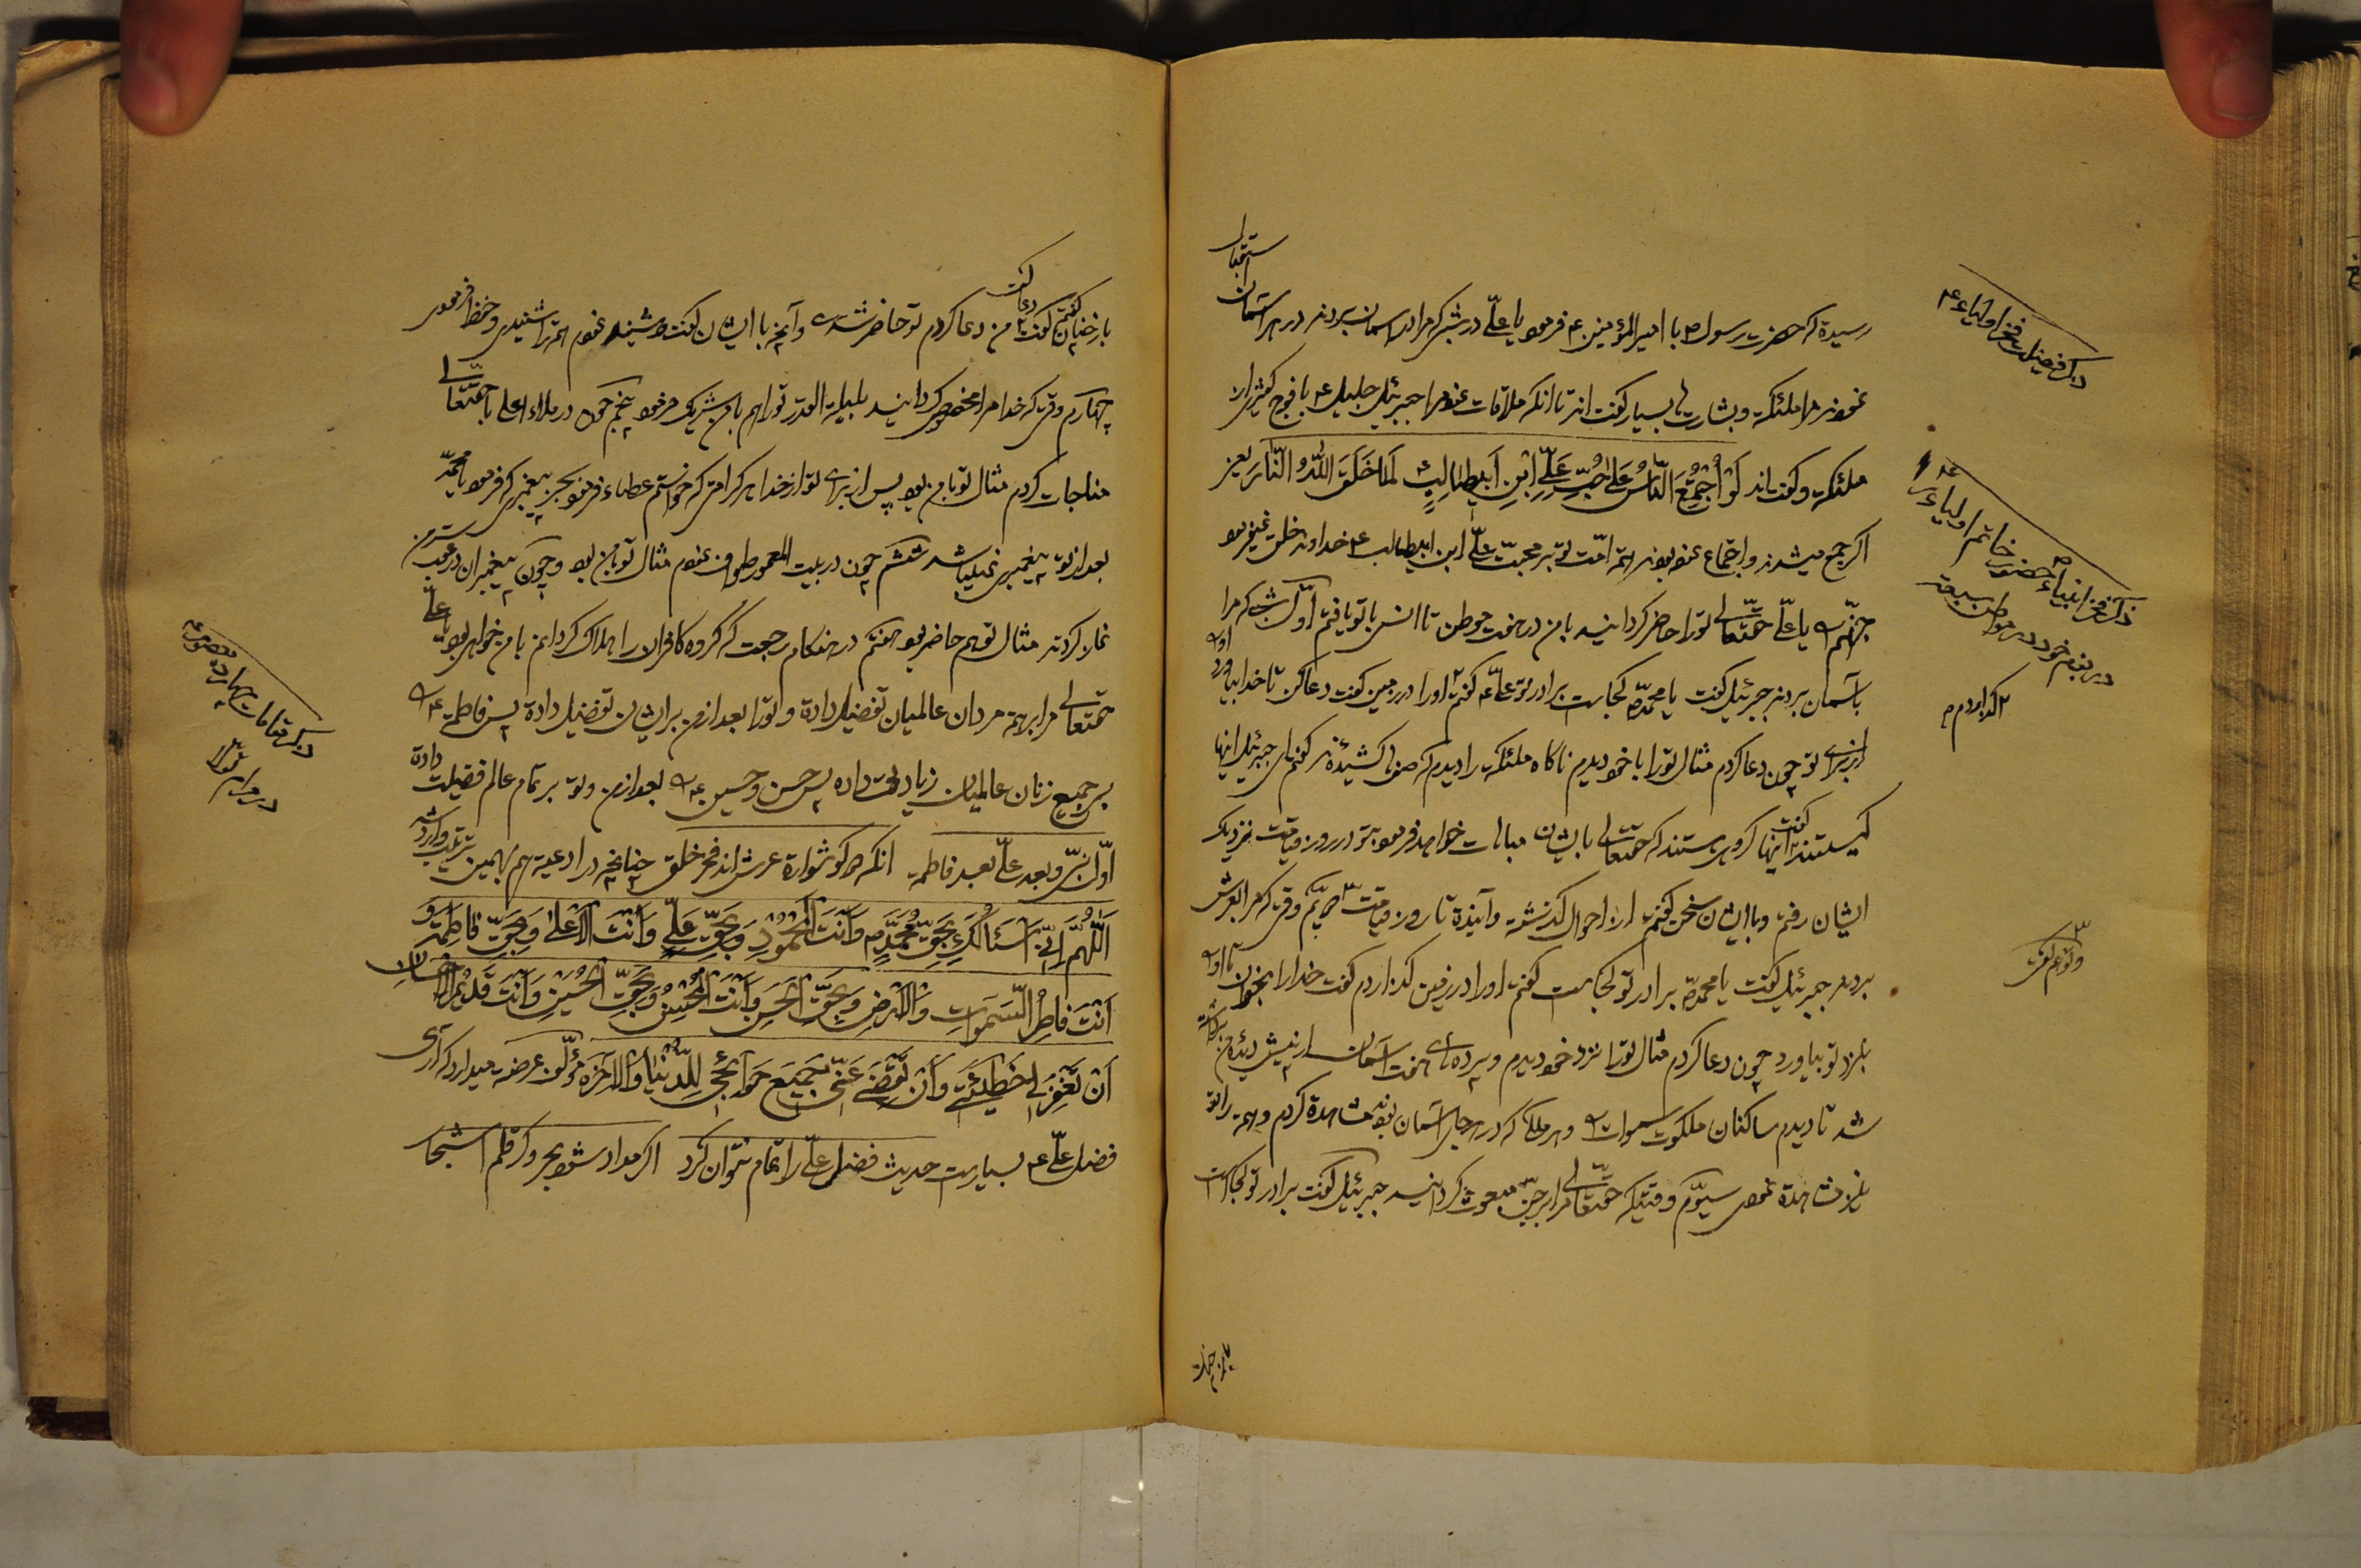 رسیده که حضرت رسول ص با امیر المؤمنین ع فرمود یا علی در شبی که مرا در آسمان بردند در هر آسمان استقبال
نمودند مرا ملئکه و بشارت بسیار گفتند تا آنکه ملاقات نمود مرا جبرئیل جلیل ع با فوج کثیر از
ملئکه و گفتند لَوْ اُجْمِعَ النّاسُ عَلی حُبِّ عَلِیِّ ابْنِ اَبیطالِبٍ لَما خَلَقَ اللهُ النّارَ یعنی
اگر جمع میشدند و اجتماع نموده بودند همه امّت تو بر محبّت علی ابن ابیطالب ع خداوند خلق نمیفرمود
جهنّم یا علی حقتعالی تو را حاضر گردانید با من در هفت موطن تا انس با تو یافتم اوّل شبی که مرا
باسمان بردند جبرئیل گفت یا محمد ص کجاست برادر تو علی ع گفتم او را در زمین گفت دعا کن تا خدا بیاورد او را
از برای تو چون دعا کردم مثال تو را با خود دیدم ناگاه ملئکه را دیدم که صفها کشیده‌اند گفتم ای جبرئیل اینها
کیستند گفت اینها گروهی هستند که حقتعالی با ایشان مباهات خواهد فرمود بتو در روز قیامت نزدیک
ایشان رفتم و با ایشان سخن گفتم از احوال گذشته و آینده تا روز قیامت دویّم وقتی که مرا بعرش
بردند جبرئیل گفت یا محمد ص برادر تو کجاست گفتم او را در زمین گذاردم گفت خدا را بخوان تا او را
بنزد تو بیاورد چون دعا کردم مثال تو را نزد خود دیدم و پرده‌های هفت آسمان از پیش دیده من برداشته
شد تا دیدم ساکنان ملکوت سموات و هر ملکی که در هر جای آسمان بود مشاهده کردم و همه را تو
نیز مشاهده نمودی سیّوم وقتیکه حقتعالی مرا بر جنّ مبعوث گردانید جبرئیل گفت برادر تو کجاست
ذکر فضیلت فخر اولیاء ع
ذکر فخر انبیاء ص حضور خاتم اولیاء ع را
در بزم خود در مواطن سبعه
گذاردم م
باز چنان
باز چنان گفتم گفت دعا کن من دعا کردم تو حاضر شدی و آنچه با ایشان گفت و شنید نمودم همه را شنیدی و حفظ فرمودی
چهارم وقتی که خدا مرا مخصوص گردانید بلیلة القدر تو را هم با من شریک فرمود پنجم چون در ملاء اعلی با حقتعالی
مناجات کردم مثال تو با من بود پس از برای تو از خدا هر کرامتی که خواستم عطا فرمود بجز پیغمبری که فرمود یا محمد
بعد از تو پیغمبری نمیباشد ششم چون در بیت المعمور طواف نمودم مثال تو با من بود و چون پیغمبران در عقب سر من
نماز کردند مثال تو هم حاضر بود هفتم در هنگام رجعت که گروه کافران را هلاک گردانم با من خواهی بود یا علی
حقتعالی مرا بر همه مردان عالمیان تفضیل داده و تو را بعد از من بر ایشان تفضیل داده پس فاطمه ع
بر جمیع زنان عالمیان زیادتی داده پس حسن و حسین ع بعد از من و تو بر تمام عالم فضیلت داده
اوّل نبی و بعد علی بعد فاطمه انکه دو گوشواره عرش‌اند فخر خلق چنانچه در ادعیه هم بهمین ترتیب وارد شده
اَللّهُمَّ اِنّی اَسْئَلُکَ بِحَقِّ مُحَمَّدٍ وَاَنْتَ الْمَحْمُودُ وَبِحَقِّ عَلِیٍّ وَاَنْتَ الْاَعْلی وَبِحَقِّ فاطِمَةَ وَ
اَنْتَ فاطِرُ السَّمواتِ وَالْاَرْضِ وَبِحَقِّ الْحَسَنِ وَاَنْتَ الْمُحْسِنُ وَبِحَقِّ الْحُسَیْنِ وَاَنْتَ قَدیمُ الْاِحْسانِ
اَنْ تَغْفِرَ لی خَطیئَتی وَاَنْ تَقْضِیَ عَنّی جَمیعَ حَوائِجی لِلدُّنْیا وَالْاخِرَةِ مؤلّف عرضه میدارد که آری
فضل علی ع بسیار است حدیث فضل علی را تمام نتوان کرد اگر مداد شود بحر و گر قلم اشجار